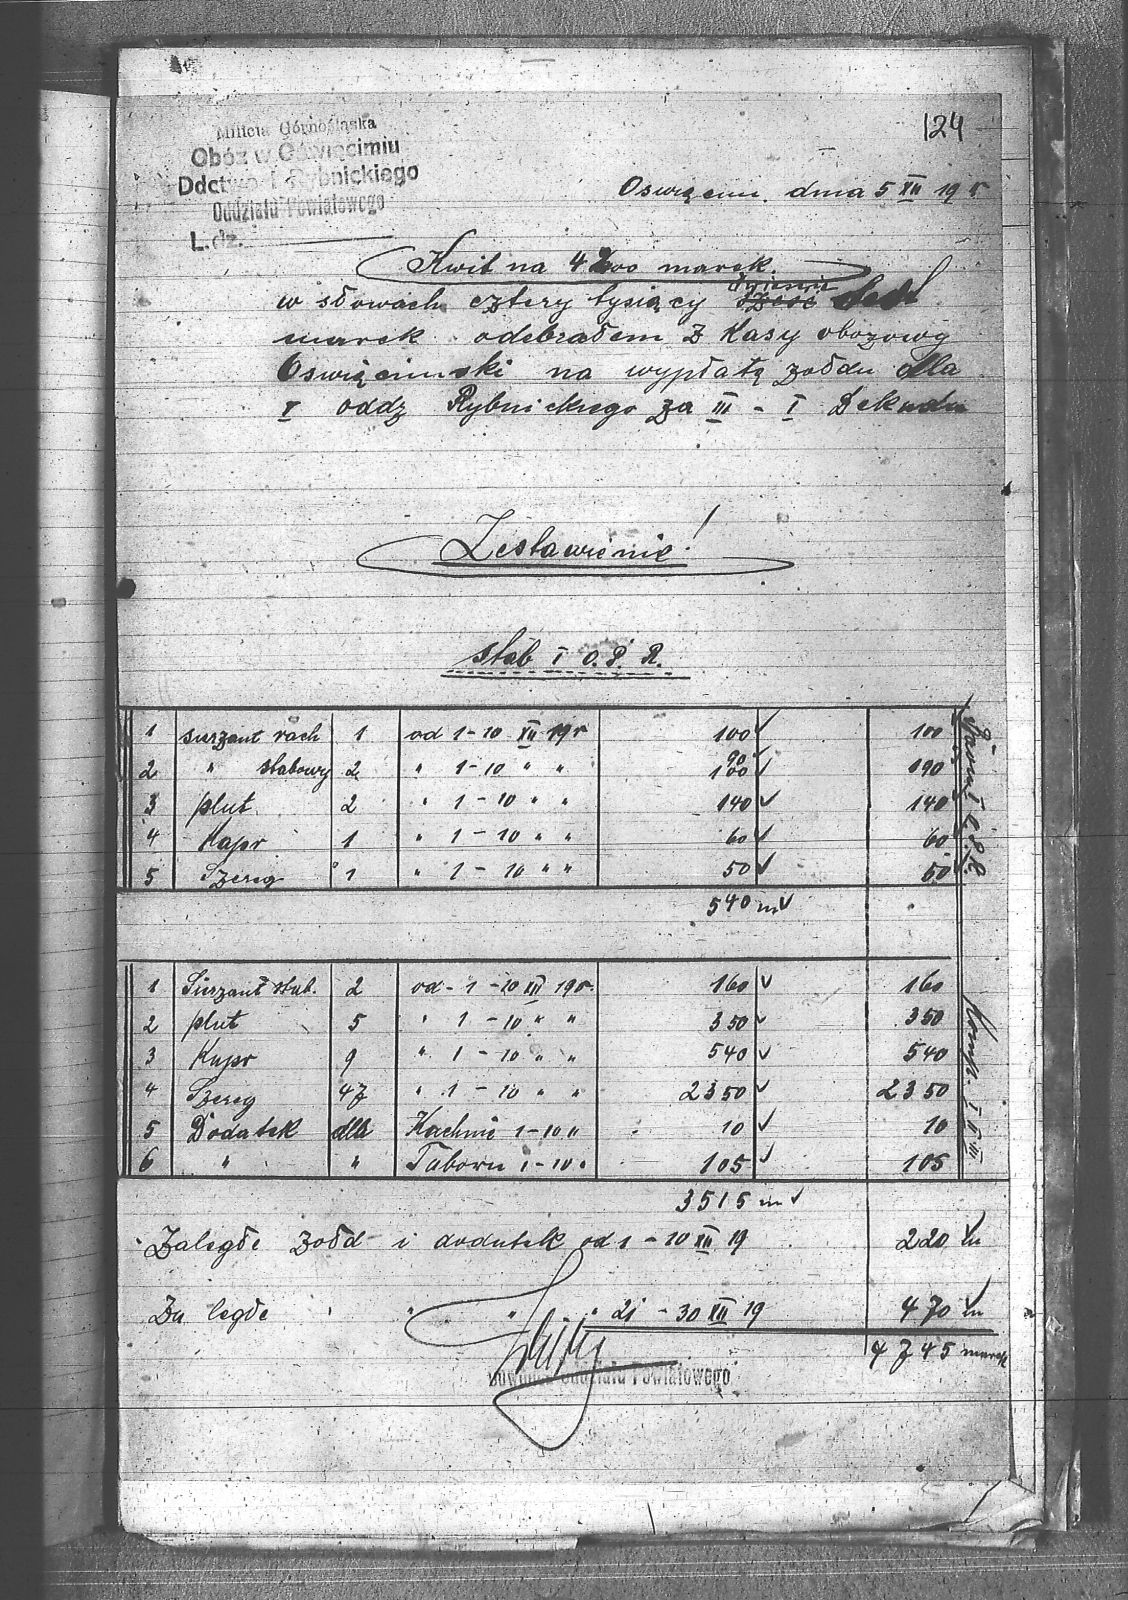 124
Milicia Górnośląska
Obóz w Oświęcimiu
Ddctwo I Rybnickiego
Oddziału Powiatowego
L. dz.
Oswięcim. dnia 5 XII 19 r
Kwit na 4700 marek.
w słowach cztery tysiący
marek odebrałem z Kasy obozowy
Oswięcimski na wypłatę zołdu dla
I oddz Rybnickiego za III - I Dekadu
Zestawienie!
Stab I O. P. R.
1 surzant rach 1 od 1-10 XII 19r 100 100
2 " stabowy 2 " 1-10 " " 90 100 190
3 plut. 2 " 1-10 " " 140 140
4 Kapr 1 " 1-10 " " 60 60
5 Szereg 1 " 1-10 " " 50 50
540 m
1 Surzant stab. 2 od - 1-10 XII 19r. 160 160
2 plut 5 " 1-10 " " 350 350
3 Kapr 9 " 1-10 " " 540 540
4 Szereg 47 " 1-10 " " 2350 2350
5 Dodatek dla Kuchnie 1-10 " 10 10
6 " " Taboru 1-10 " 105 105
Komp. I II III
3515 m
Zaległe zołd i dodatek od 1-10 XII 19 220 m
Za ległe " " " 21-30 XII 19 470 m
4745 marek
Oddziału Powiatowego